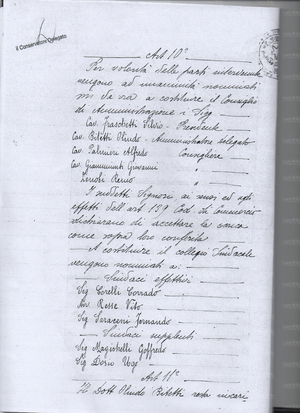 Il Conservatore Delegato
Art 10°
Per volontà delle parti intervenute
vengono ad unanimità nominati
a costituire il Consiglio
di Amministrazione i Sigg
Cav. Fraschetti Silvio - Presidente
Cav. Bitetti Olindo - Amministratore delegato
Cav. Palmieri Alfredo Consigliere
Cav. Giammunti Giovanni "
Remo "
I suddetti Signori ai sensi ed agli
effetti dell'art 159 Cod. di Commercio
dichiarano di accettare la carica
come sopra loro conferita
A costituire il collegio Sindacale
vengono nominati a:
Sindaci effettivi
Sig Corelli Corrado
Vito
Sig Saraceni Fernando
Sindaci supplenti
Sig Magistrelli Goffredo
Sig Dorio Ugo
Art 11°
Il Dott Olindo Bitetti resta